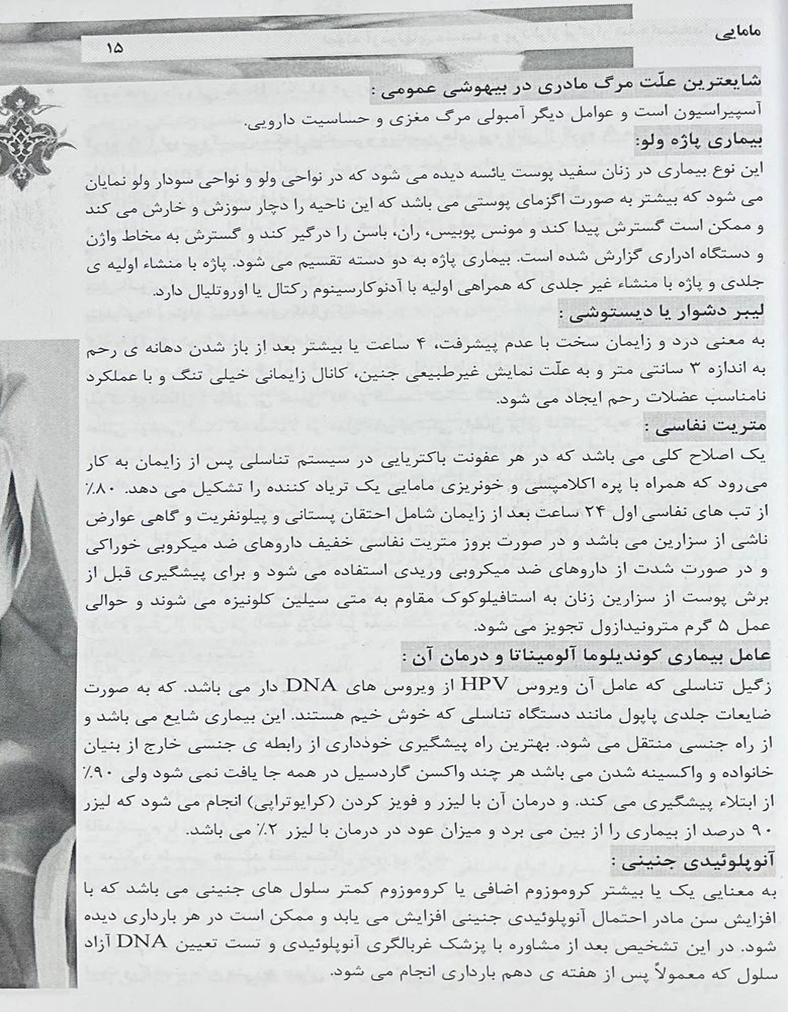 مامایی
۱۵
شایعترین علّت مرگ مادری در بیهوشی عمومی :
آسپیراسیون است و عوامل دیگر آمبولی مرگ مغزی و حساسیت دارویی.
بیماری پاژه ولو:
این نوع بیماری در زنان سفید پوست یائسه دیده می شود که در نواحی ولو و نواحی سودار ولو نمایان
می شود که بیشتر به صورت اگزمای پوستی می باشد که این ناحیه را دچار سوزش و خارش می کند
و ممکن است گسترش پیدا کند و مونس پوبیس، ران، باسن را درگیر کند و گسترش به مخاط واژن
و دستگاه ادراری گزارش شده است. بیماری پاژه به دو دسته تقسیم می شود. پاژه با منشاء اولیه ی
جلدی و پاژه با منشاء غیر جلدی که همراهی اولیه با آدنوکارسینوم رکتال یا اوروتلیال دارد.
لیبر دشوار یا دیستوشی :
به معنی درد و زایمان سخت با عدم پیشرفت، ۴ ساعت یا بیشتر بعد از باز شدن دهانه ی رحم
به اندازه ۳ سانتی متر و به علّت نمایش غیرطبیعی جنین، کانال زایمانی خیلی تنگ و با عملکرد
نامناسب عضلات رحم ایجاد می شود.
متریت نفاسی :
یک اصلاح کلی می باشد که در هر عفونت باکتریایی در سیستم تناسلی پس از زایمان به کار
می‌رود که همراه با پره اکلامپسی و خونریزی مامایی یک تریاد کننده را تشکیل می دهد. ۸۰٪
از تب های نفاسی اول ۲۴ ساعت بعد از زایمان شامل احتقان پستانی و پیلونفریت و گاهی عوارض
ناشی از سزارین می باشد و در صورت بروز متریت نفاسی خفیف داروهای ضد میکروبی خوراکی
و در صورت شدت از داروهای ضد میکروبی وریدی استفاده می شود و برای پیشگیری قبل از
برش پوست از سزارین زنان به استافیلوکوک مقاوم به متی سیلین کلونیزه می شوند و حوالی
عمل ۵ گرم مترونیدازول تجویز می شود.
عامل بیماری کوندیلوما آلومیناتا و درمان آن :
زگیل تناسلی که عامل آن ویروس HPV از ویروس های DNA دار می باشد. که به صورت
ضایعات جلدی پاپول مانند دستگاه تناسلی که خوش خیم هستند. این بیماری شایع می باشد و
از راه جنسی منتقل می شود. بهترین راه پیشگیری خودداری از رابطه ی جنسی خارج از بنیان
خانواده و واکسینه شدن می باشد هر چند واکسن گاردسیل در همه جا یافت نمی شود ولی ۹۰٪
از ابتلاء پیشگیری می کند. و درمان آن با لیزر و فویز کردن (کرایوتراپی) انجام می شود که لیزر
۹۰ درصد از بیماری را از بین می برد و میزان عود در درمان با لیزر ۲٪ می باشد.
آنوپلوئیدی جنینی :
به معنایی یک یا بیشتر کروموزوم اضافی یا کروموزوم کمتر سلول های جنینی می باشد که با
افزایش سن مادر احتمال آنوپلوئیدی جنینی افزایش می یابد و ممکن است در هر بارداری دیده
شود. در این تشخیص بعد از مشاوره با پزشک غربالگری آنوپلوئیدی و تست تعیین DNA آزاد
سلول که معمولاً پس از هفته ی دهم بارداری انجام می شود.